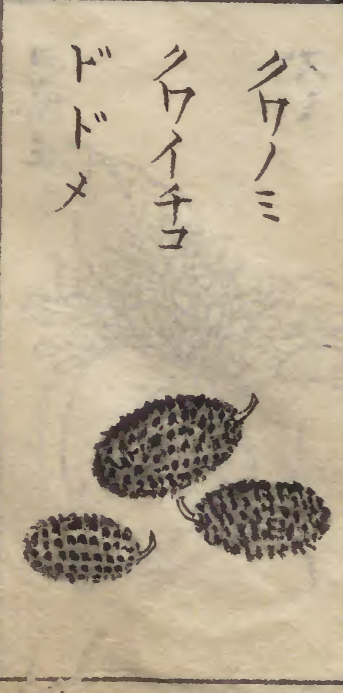 クワノミ
クワイチコ
ドドメ